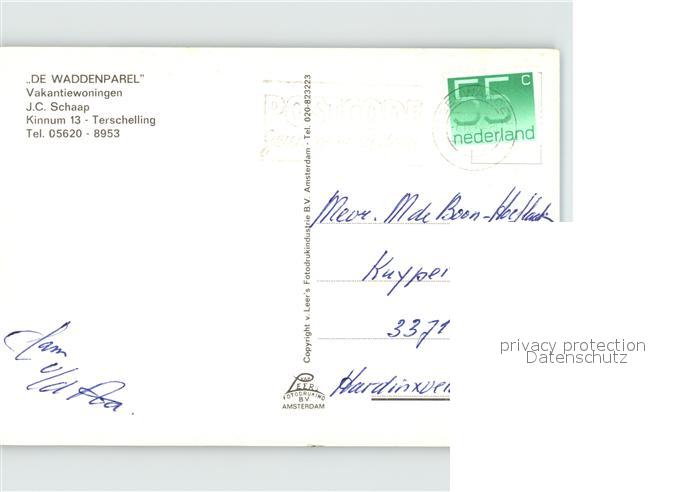 „DE WADDENPAREL"
Vakantiewoningen
J.C. Schaap
Kinnum 13 - Terschelling
Tel. 05620 - 8953
POSTCODE
55 c
nederland
Copyright v. Leer's Fotodrukindustrie B.V. Amsterdam - Tel. 020-823223
Mevr. M de Boon-
Kuyper
3371
Hardinxvel
privacy protection
Datenschutz
VAN
LEER
FOTODRUKIND
B.V.
AMSTERDAM